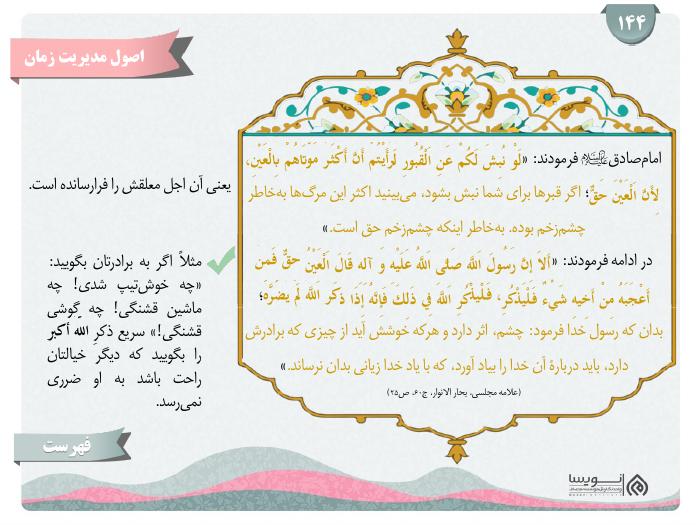 ۱۴۴
اصول مدیریت زمان
امام‌صادق علیه‌السلام فرمودند: «لَوْ نُبِشَ لَكُمْ عَنِ الْقُبُورِ لَرَأَيْتُمْ أَنَّ أَكْثَرَ مَوْتَاهُمْ بِالْعَيْنِ،
لِأَنَّ الْعَيْنَ حَقٌّ؛ اگر قبرها برای شما نبش بشود، می‌بینید اکثر این مرگ‌ها به‌خاطر
چشم‌زخم بوده. به‌خاطر اینکه چشم‌زخم حق است.»
در ادامه فرمودند: «أَلَا إِنَّ رَسُولَ اللَّهِ صَلَّى اللَّهُ عَلَيْهِ وَ آلِهِ قَالَ الْعَيْنُ حَقٌّ فَمَنْ
أَعْجَبَهُ مِنْ أَخِيهِ شَيْءٌ فَلْيَذْكُرِ، فَلْيَذْكُرِ اللَّهَ فِي ذَلِكَ فَإِنَّهُ إِذَا ذَكَرَ اللَّهَ لَمْ يَضُرَّهُ؛
بدان که رسول خدا فرمود: چشم، اثر دارد و هرکه خوشش آید از چیزی که برادرش
دارد، باید دربارهٔ آن خدا را بیاد آورد، که با یاد خدا زیانی بدان نرساند.»
(علامه مجلسی، بحار الانوار، ج۶۰، ص۲۵)
یعنی آن اجل معلقش را فرارسانده است.
مثلاً اگر به برادرتان بگویید:
«چه خوش‌تیپ شدی! چه
ماشین قشنگی! چه گوشی
قشنگی!» سریع ذکرِ الله أکبر
را بگویید که دیگر خیالتان
راحت باشد به او ضرری
نمی‌رسد.
فهرست
نویسا